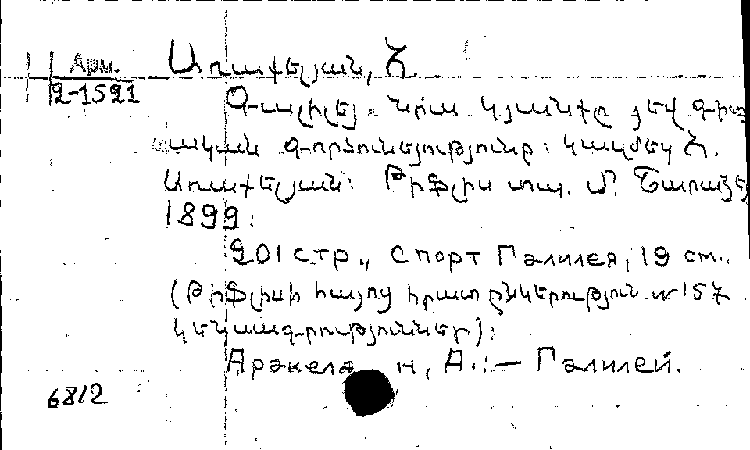 Арм.
2-1521
Առաքելյան, Հ.
Գալիլեյ. նրա կյանքը յեվ գիտ
ական գործունեությունը: կազմեց Հ.
Առաքելյան: Թիֆլիս տպ. Մ. Շարաձե
1899:
201 стр., с порт Галилея, 19 см.
(Թիֆլիսի հայոց հրատ ընկերություն № 157
կենսագրություններ):
Аракеля н, А.: — Галилей.
6812